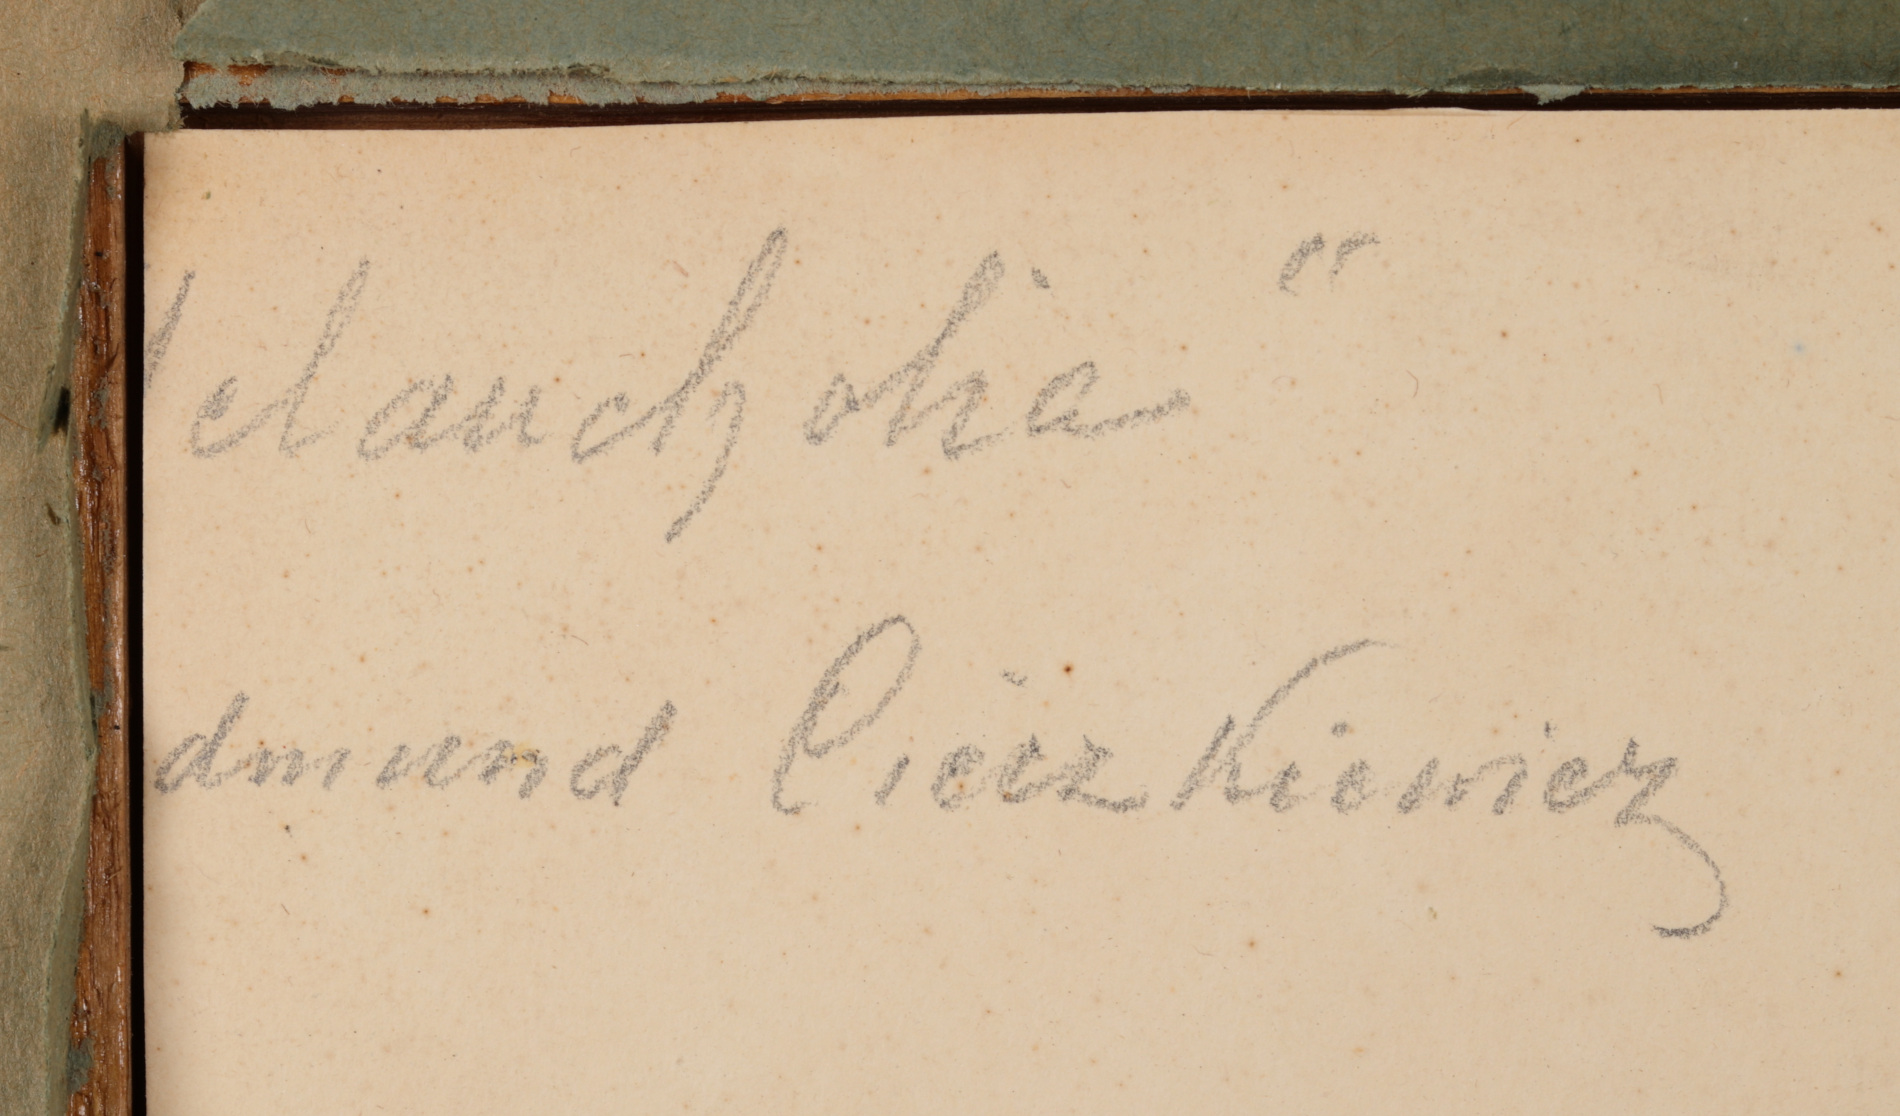 elancholia"
dmund Cieczkiewicz